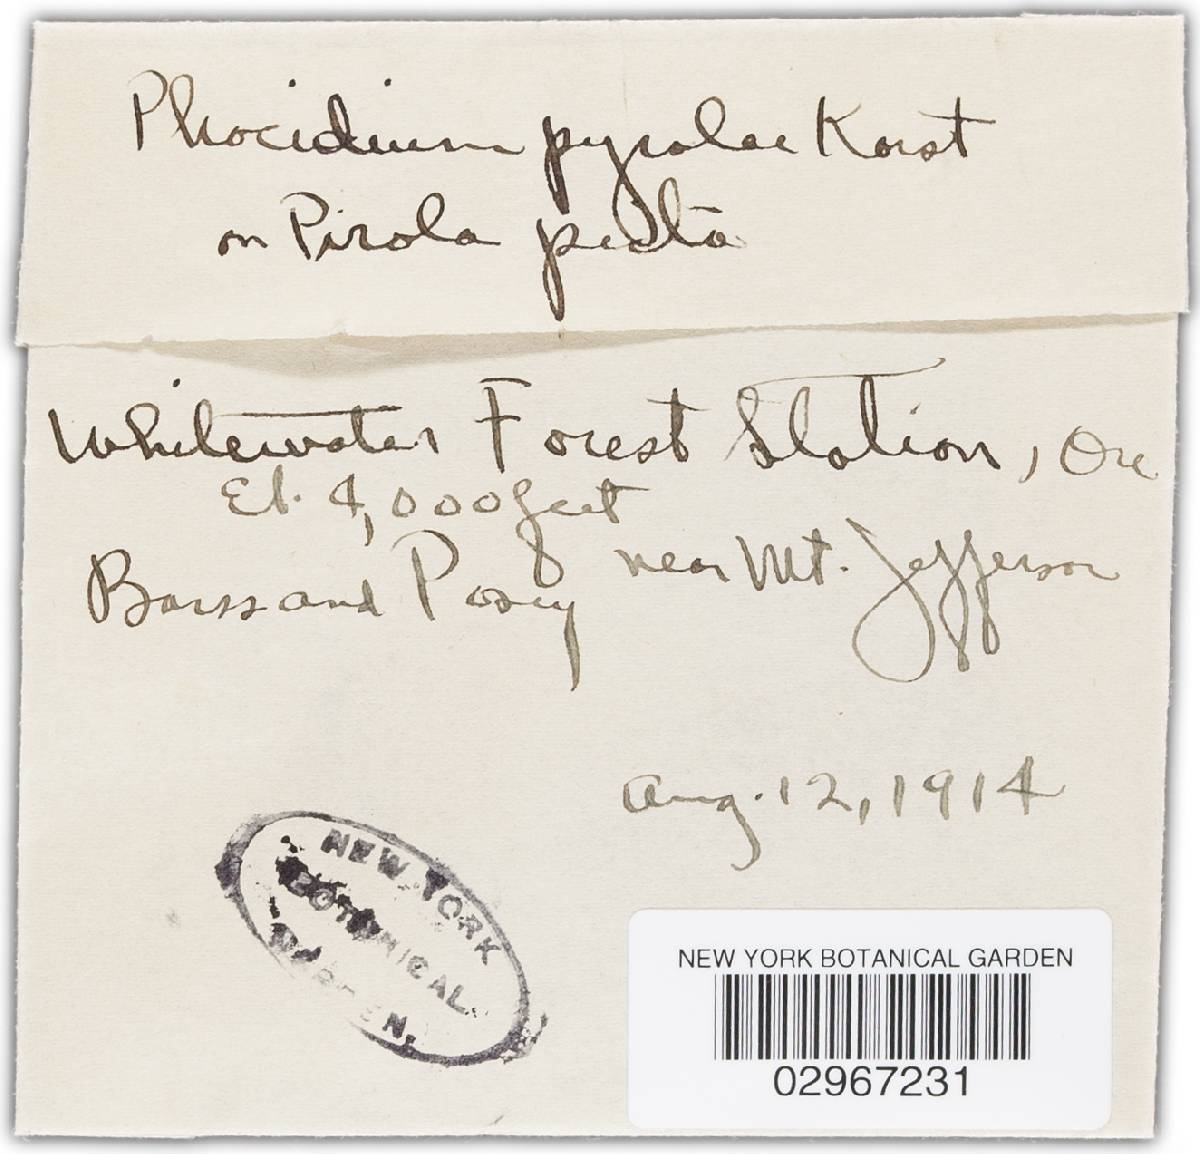 Phacidium pyrolae Karst
on Pirola picta
Whitewater Forest Station, Ore
El. 4,000 feet
Barss and Posey near Mt. Jefferson
Aug. 12, 1914
NEW YORK
BOTANICAL
GARDEN.
NEW YORK BOTANICAL GARDEN
02967231